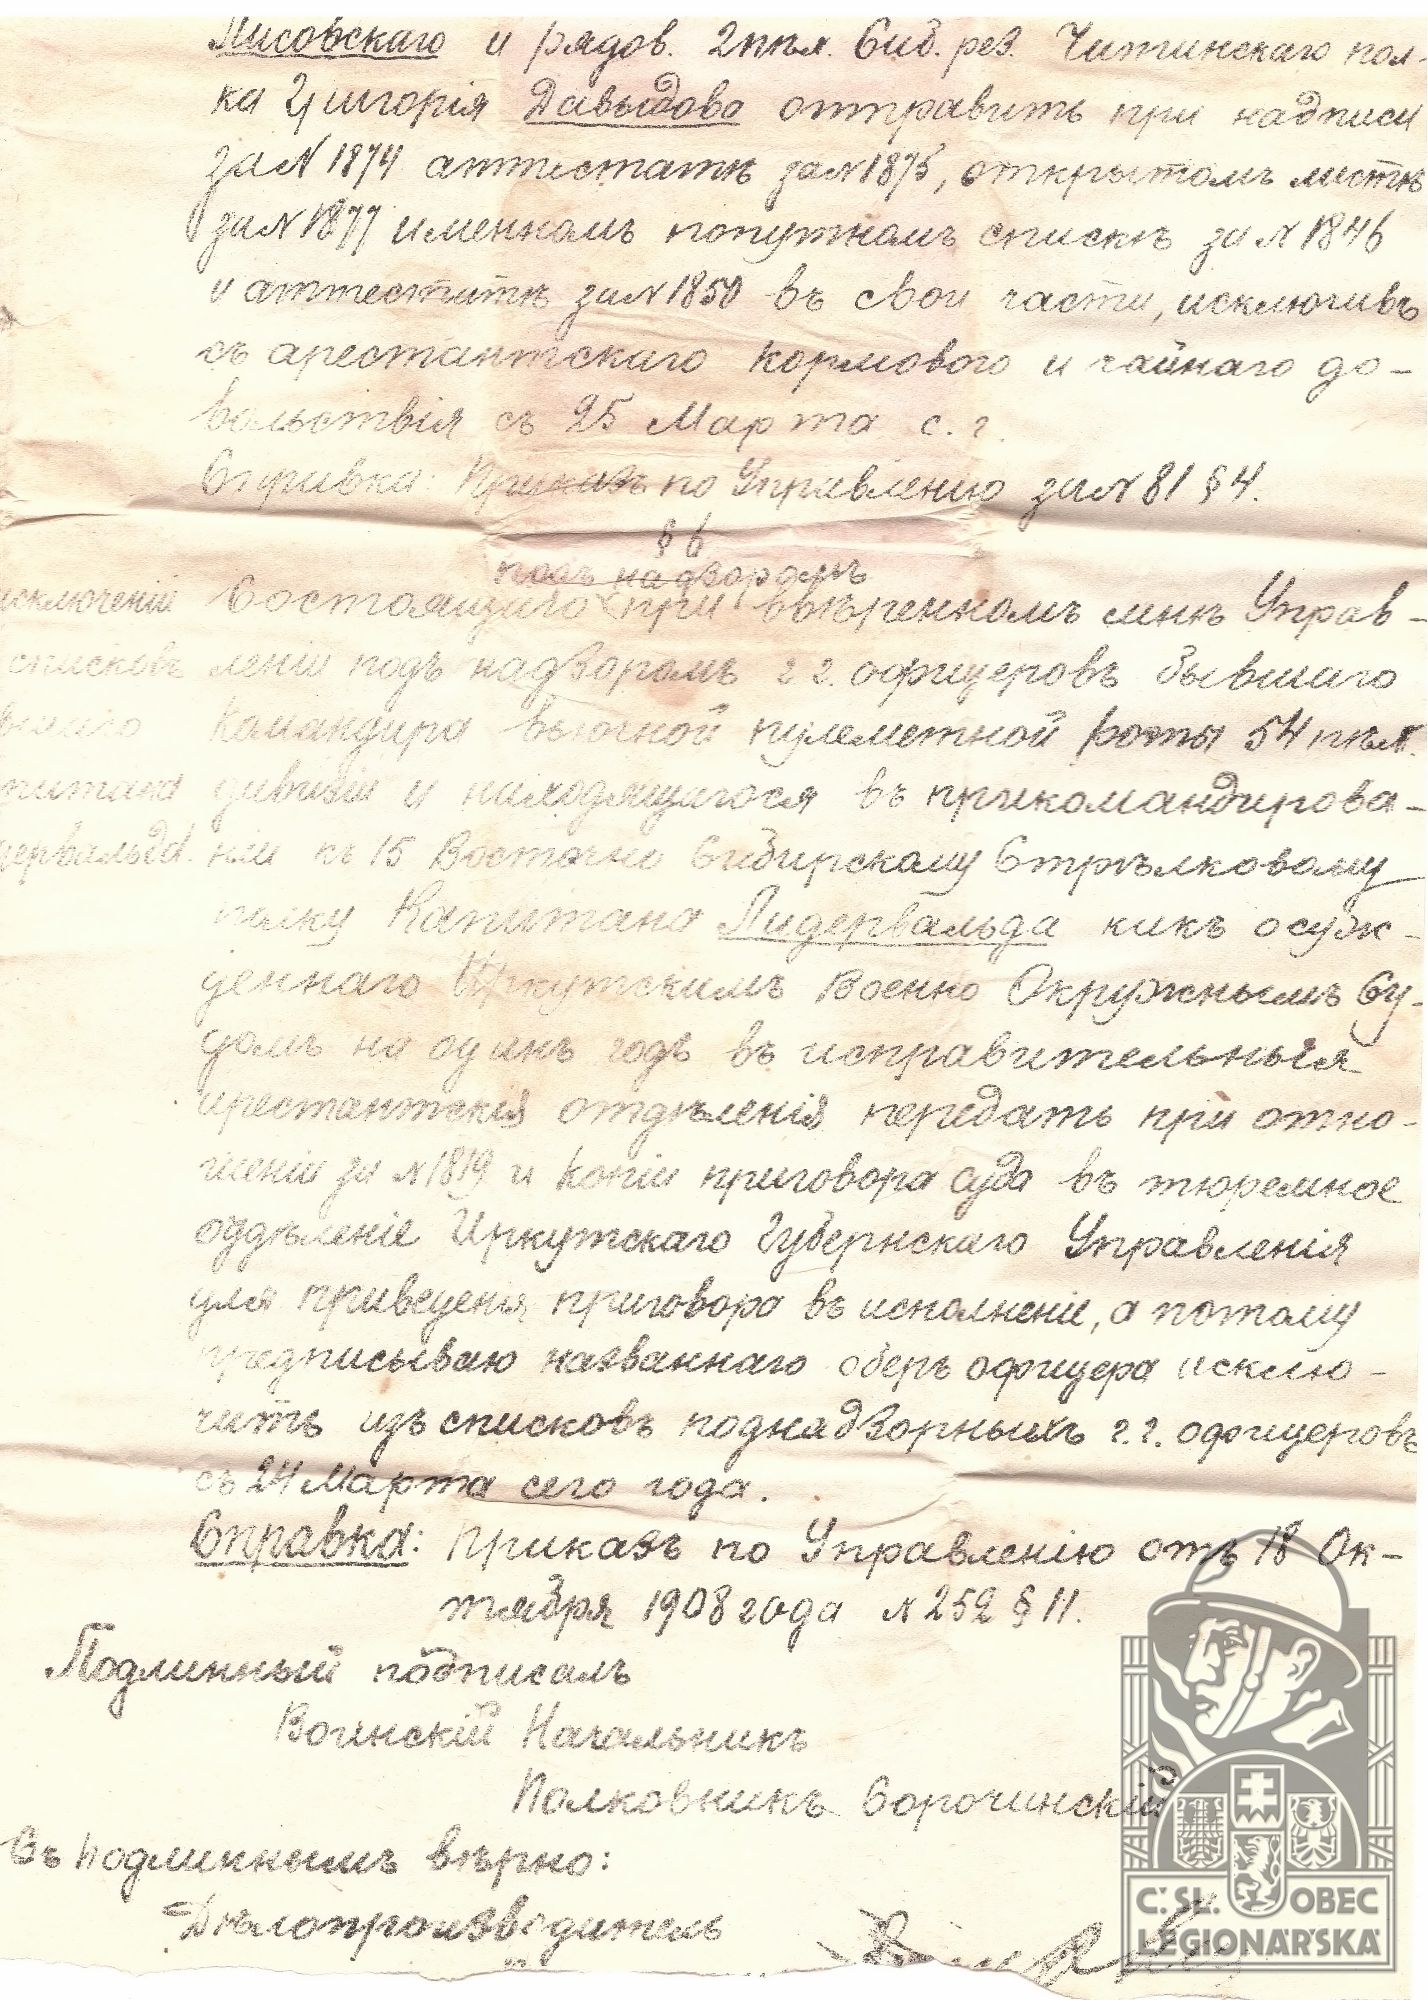 Лисовскаго и рядов. 2 пѣх. Сиб. рез. Читинскаго пол-
ка Григорія Давыдова отправить при надписи
за N 1874 аттестатѣ за N 1875, открытомъ листѣ
за N 1877 именномъ попутномъ спискѣ за N 1846
и аттестатѣ за N 1850 въ свои части, исключивъ
съ арестантскаго кормового и чайнаго до-
вольствія съ 25 Марта с. г.
Справка: Приказъ по Управленію за N 81 § 4.
§ 6
подъ надзоромъ
исключеніи Состоящаго при ввѣренномъ мнѣ Управ-
списковъ леніи подъ надзоромъ г г. офицеровъ бывшаго
Командира вьючной пулеметной роты 54 пѣх.
дивизіи и находящагося въ прикомандирова-
ніи къ 15 Восточно Сибирскому Стрѣлковому
полку Капитана Лидервальда какъ осуж-
деннаго Иркутскимъ Военно Окружнымъ Су-
домъ на одинъ годъ въ исправительныя
арестантскія отдѣленія передать при отно-
шеніи за N 1819 и копіи приговора суда въ тюремное
отдѣленіе Иркутскаго Губернскаго Управленія
для приведенія приговора въ исполненіе, а потому
предписываю названнаго оберъ офицера исклю-
чить изъ списковъ поднадзорныхъ г. г. офицеровъ
съ 24 Марта сего года.
Справка: Приказъ по Управленію отъ 18 Ок-
тября 1908 года N 252 § 11.
Подлинный подписалъ
Воинскій Начальникъ
Полковникъ Сорочинскій
Съ подлиннымъ вѣрно:
Дѣлопроизводитель
Č. SL. OBEC
LEGIONÁŘSKÁ